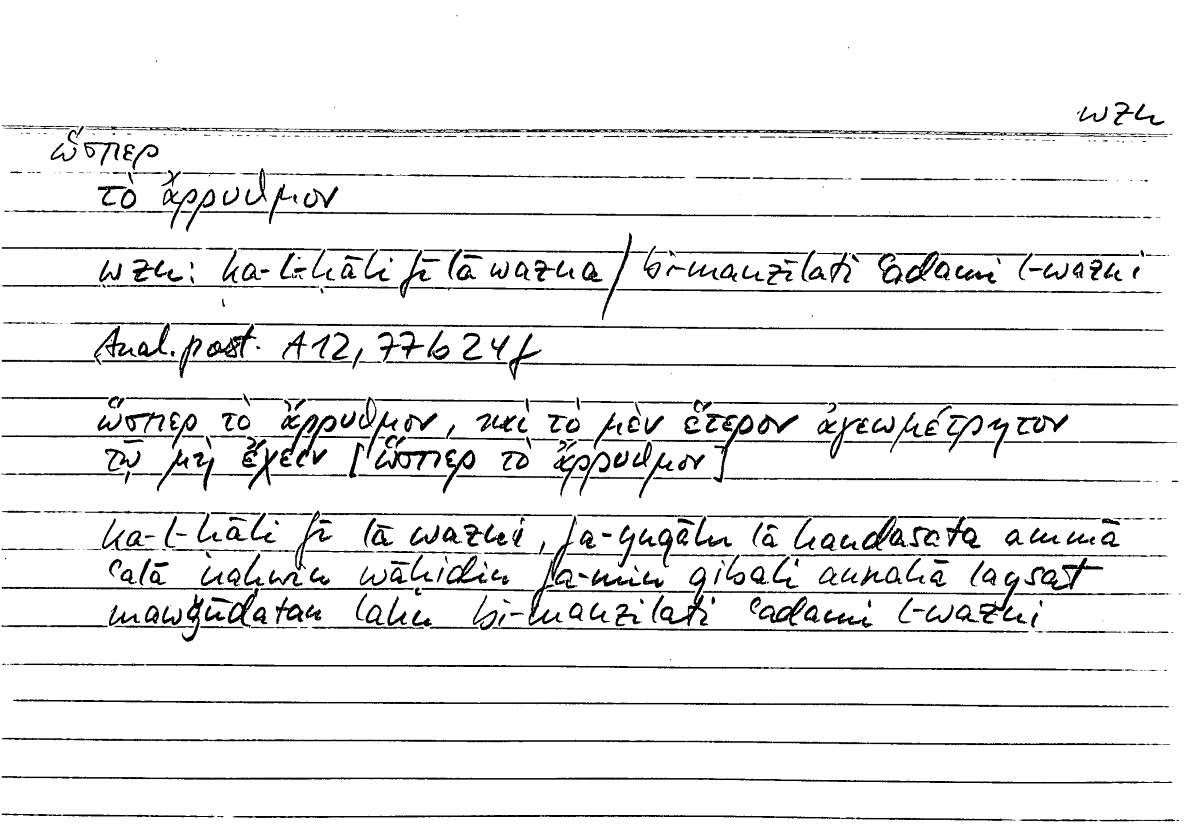 wzn
ὥσπερ
τὸ ἄρρυθμον
wzn: ka-l-ḥāli fī lā wazna / bi-manzilati ʿadami l-wazni
Anal. post. A 12, 77 b 24 f
ὥσπερ τὸ ἄρρυθμον, καὶ τὸ μὲν ἕτερον ἀγεωμέτρητον
τῷ μὴ ἔχειν [ὥσπερ τὸ ἄρρυθμον]
ka-l-ḥāli fī lā wazni, fa-yuqālu lā handasata ammā
ʿalā naḥwin wāḥidin fa-min qibali annahā laysat
mawǧūdatan lahū bi-manzilati ʿadami l-wazni